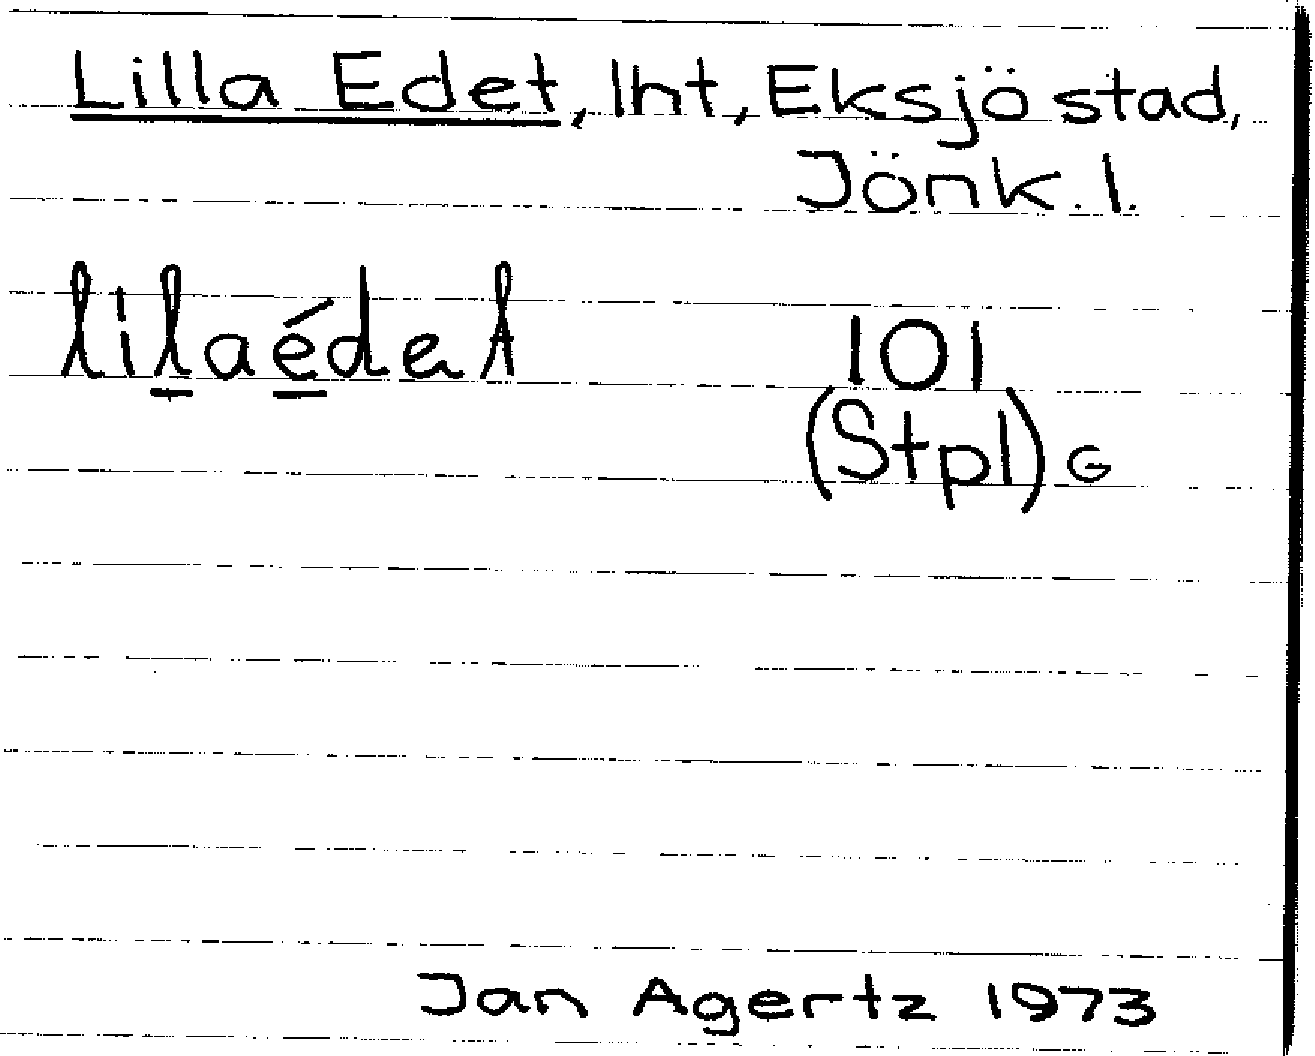 Lilla Edet, lht, Eksjö stad,
Jönk. l.
lilaédet 101
(Stpl) G
Jan Agertz 1973